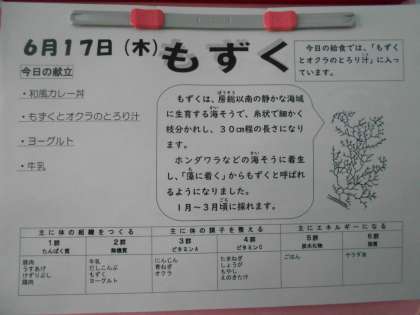 6月17日(木)もずく
今日の献立
・和風カレー丼
・もずくとオクラのとろり汁
・ヨーグルト
・牛乳
今日の給食では、「もずく
とオクラのとろり汁」に入
っています。
もずくは、房総以南の静かな海域
に生育する海そうで、糸状で細かく
枝分かれし、30cm程の長さになり
ます。
ホンダワラなどの海そうに着生
し、「藻に着く」からもずくと呼ばれ
るようになりました。
1月～3月頃に採れます。
主に体の組織をつくる 主に体の調子を整える 主にエネルギーになる
1群 2群 3群 4群 5群 6群
たんぱく質 無機質 ビタミンA ビタミンC 炭水化物 脂質
豚肉 牛乳 にんじん たまねぎ ごはん サラダ油
うすあげ だしこんぶ 青ねぎ しょうが
けずりぶし もずく オクラ もやし
鶏肉 ヨーグルト えのきたけ